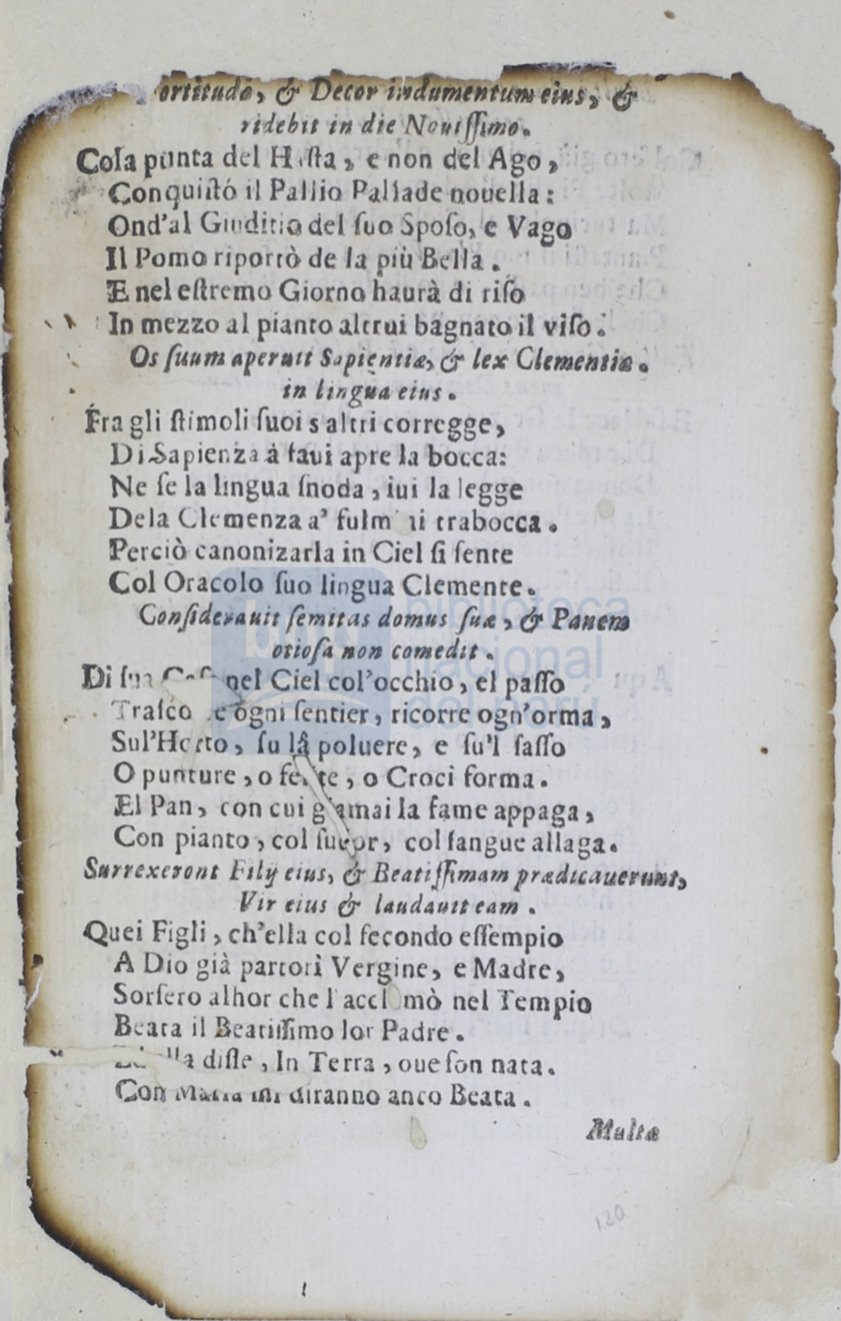 ortitudo, & Decor indumentum eius, &
ridebit in die Nouiſſimo.
Coſa punta del Haſta, e non del Ago,
Conquiſtó il Pallio Pallade nouella:
Ond'al Giuditio del ſuo Spoſo, e Vago
Il Pomo riportò de la più Bella.
E nel eſtremo Giorno haurà di riſo
In mezzo al pianto altrui bagnato il viſo.
Os ſuum aperuit Sapientiæ, & lex Clementiæ.
in lingua eius.
Fra gli ſtimoli ſuoi s altri corregge,
Di Sapienza à faui apre la bocca:
Ne ſe la lingua ſnoda, iui la legge
Dela Clemenza a' fulm ii trabocca.
Perciò canonizarla in Ciel ſi ſente
Col Oracolo ſuo lingua Clemente.
Conſiderauit ſemitas domus ſuæ, & Panem
otioſa non comedit.
Di ſua nel Ciel col'occhio, el paſſo
Traſco e ogni ſentier, ricorre ogn'orma,
Sul'Horto, ſu là poluere, e ſu'l ſaſſo
O punture, o ferite, o Croci forma.
El Pan, con cui giamai la fame appaga,
Con pianto, col ſudor, col ſangue allaga.
Surrexeront Filij eius, & Beatiſſimam prædicauerunt,
Vir eius & laudauit eam.
Quei Figli, ch'ella col fecondo eſſempio
A Dio già partorì Vergine, e Madre,
Sorſero alhor che l accl mò nel Tempio
Beata il Beatiſſimo lor Padre.
diſſe, In Terra, oue ſon nata.
Con Maria mi diranno anco Beata.
Multæ
120
biblioteca
nacional
del perú